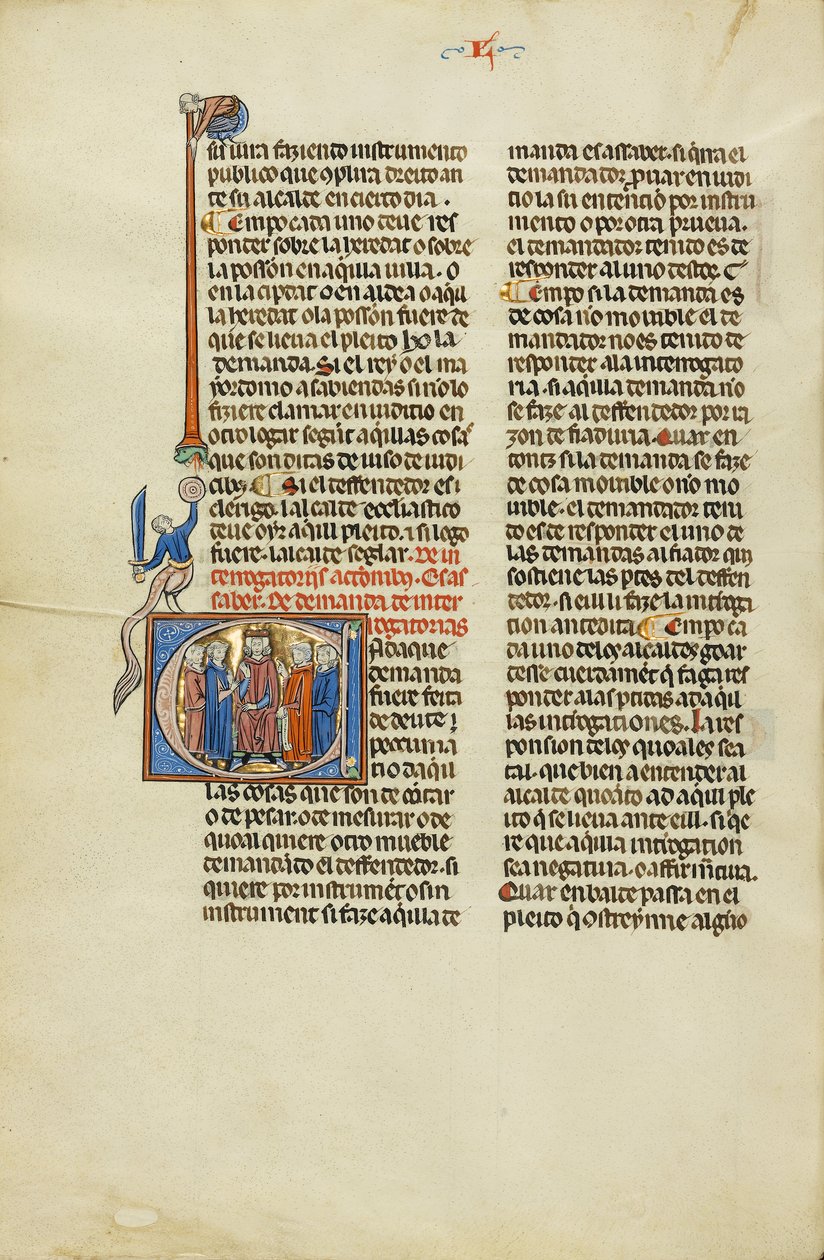 L
su uira faziendo instrumento
publico que 9plira dreito an
te su alcalde en cierto dia.
Empo cada uno deue res
ponder sobre la heredat o sobre
la possõn en aq̃illa uilla. o
en la ciptat o en aldea o aqui
la heredat o la possõn fuere de
que se lieua el pleito ho la
demanda. Si el rey o el ma
yordomo a sabiendas si no lo
fiziere clamar en iuditio en
otro logar segũt aq̃illas cosas
que son ditas de uiso de iudi
cibꝫ. Si el deffendedor es i
clerigo. lalcalde ecclesiastico
deue oyr aq̃ill pleito. ⁊ si lego
fuere. lalcalde seglar. De in
terrogatorijs actionibꝫ. Es as
saber. De demandas de inter
rogatorias
Ada que
demanda
fuere feita
de deute ⁊
peccunia
tio daq̃i
llas cosas que son de cõtar
o de pesar. o de mesurar o de
qual quiere otro mueble
demandãdo el deffendedor. si
quiere por instrumẽt o sin
instrument si faze aq̃illa de
manda es assaber. si q̃rra el
demandador ꝓuar en iudi
tio la su entẽtio por instru
mento o por otra prueua.
el demandador tenido es de
responder al uno destos. C
Empo si la demanda es
de cosa nõ mouible el de
mandador no es tenido de
responder a la interrogato
ria. si aq̃illa demanda nõ
se faze al deffendedor por ra
zon de fiaduria. Quar en
tonz si la demanda se faze
de cosa mouible o nõ mo
uible. el demandador teni
do es de responder el uno de
las demandas al fiador qui
sostiene las p̃tes del deffen
dedor. si eill li faze la int̃roga
tion antedita. Empo ca
da uno delos alcaldes goar
desse cuerdamẽt q̃ faga res
ponder a las p̃tidas ad aq̃il
las int̃rogationes. La res
ponsion delos quoales sea
tal. que bien a entender al
alcalde quoãto ad aquil ple
ito q̃ se lieua ante eill. si qe
re que aq̃illa int̃rogation
sea negatiua. o affirm̃atiua.
Quar en balde passa en el
pleito q̃ 9streynne algũo